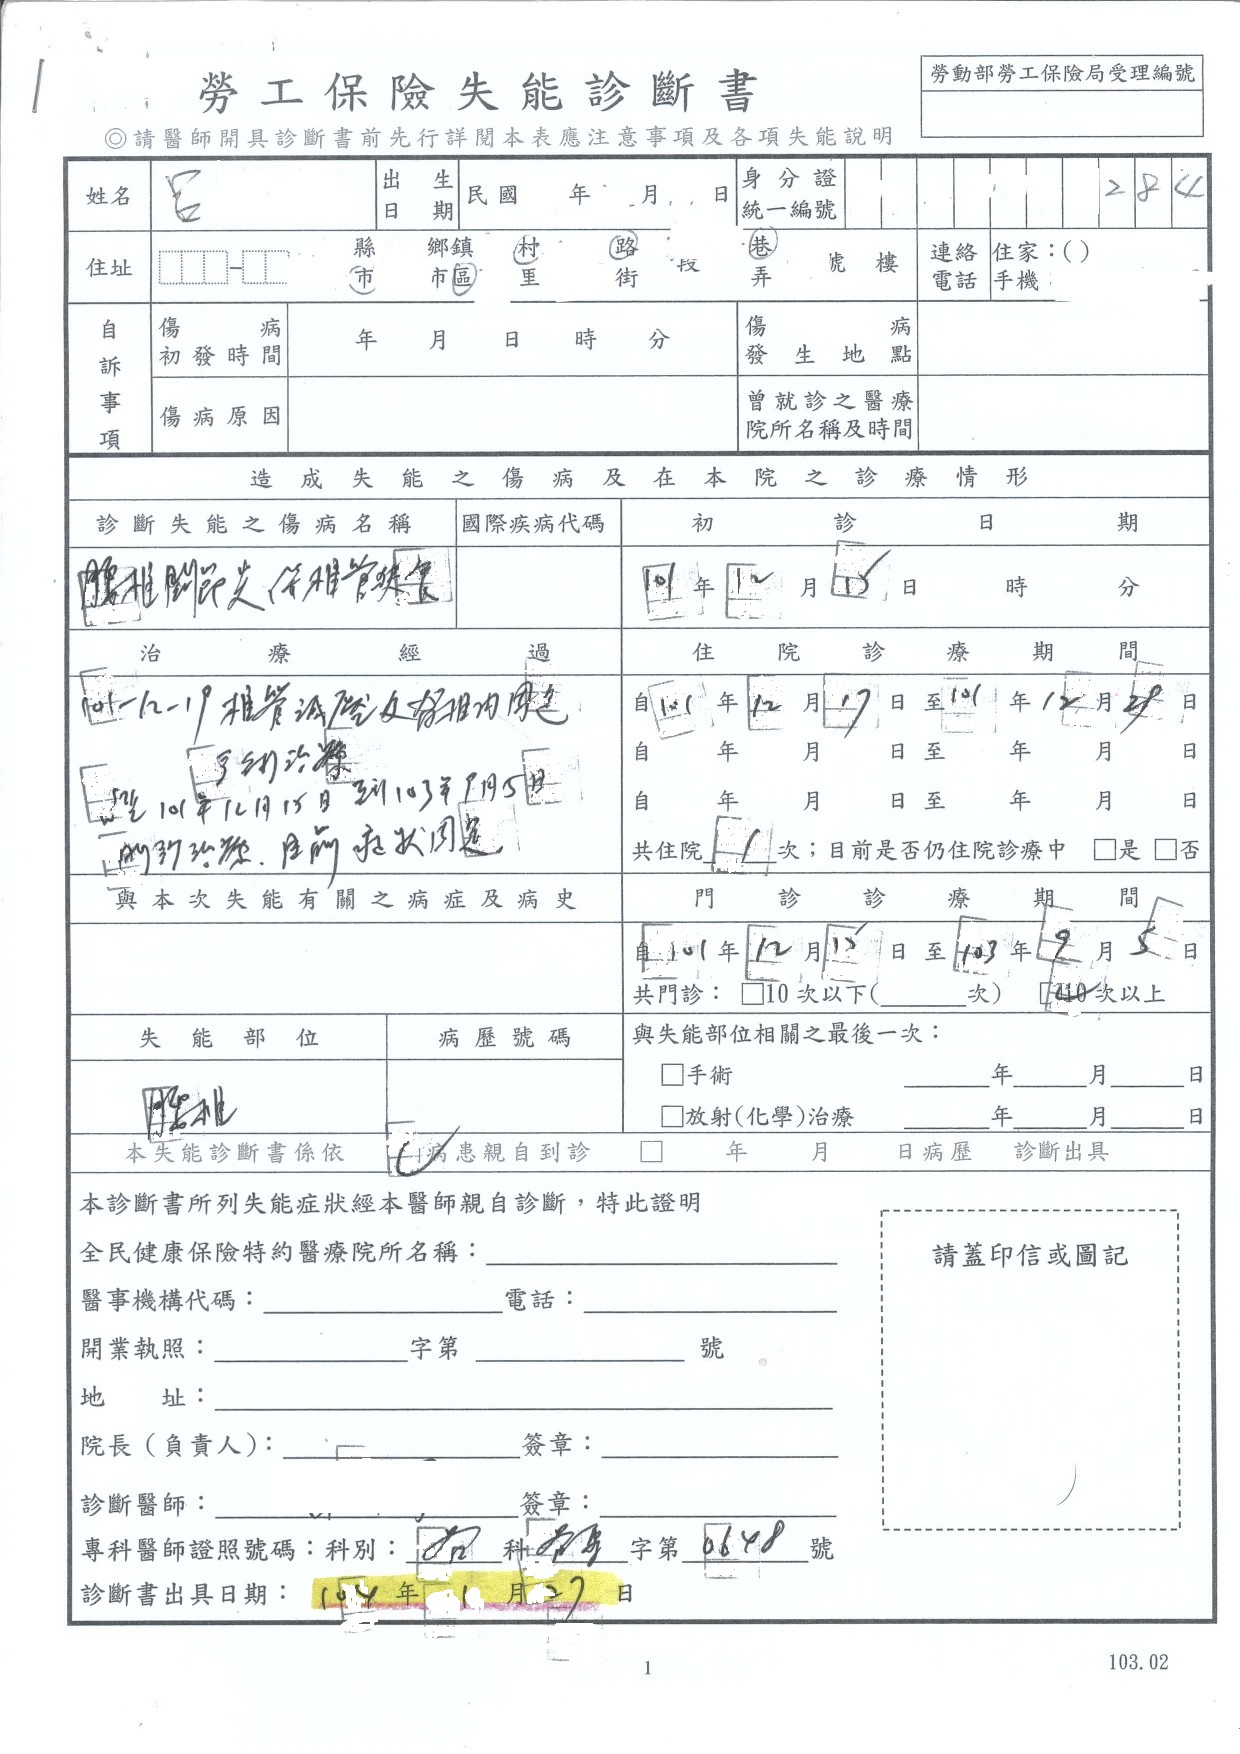 勞動部勞工保險局受理編號
勞工保險失能診斷書
◎請醫師開具診斷書前先行詳閱本表應注意事項及各項失能說明
姓名
出生日期 民國 年 月 日
身分證統一編號 2 8 4
住址
縣 鄉鎮 村 路 巷
市 市區 里 街 段 弄 號 樓
連絡電話 住家：( )
手機
自訴事項
傷病初發時間 年 月 日 時 分
傷病發生地點
傷病原因
曾就診之醫療院所名稱及時間
造成失能之傷病及在本院之診療情形
診斷失能之傷病名稱 國際疾病代碼 初診日期
腰椎關節炎併椎管狹窄
101年12月15日 時 分
治療經過 住院診療期間
101-12-19椎管減壓及
手術治療
101年12月15日到103年9月5日
門診治療.目前症狀固定
自101年12月17日至101年12月29日
自 年 月 日至 年 月 日
自 年 月 日至 年 月 日
共住院1次；目前是否仍住院診療中 □是 □否
與本次失能有關之病症及病史 門診診療期間
自101年12月15日至103年9月5日
共門診：□10次以下( 次) ☑10次以上
失能部位 病歷號碼
腰椎
與失能部位相關之最後一次：
□手術 年 月 日
□放射(化學)治療 年 月 日
本失能診斷書係依 ☑病患親自到診 □ 年 月 日病歷 診斷出具
本診斷書所列失能症狀經本醫師親自診斷，特此證明
全民健康保險特約醫療院所名稱：
醫事機構代碼： 電話：
開業執照： 字第 號
地 址：
院長（負責人）： 簽章：
診斷醫師： 簽章：
請蓋印信或圖記
專科醫師證照號碼：科別： 科 字第0648號
診斷書出具日期： 104年1月27日
1
103.02